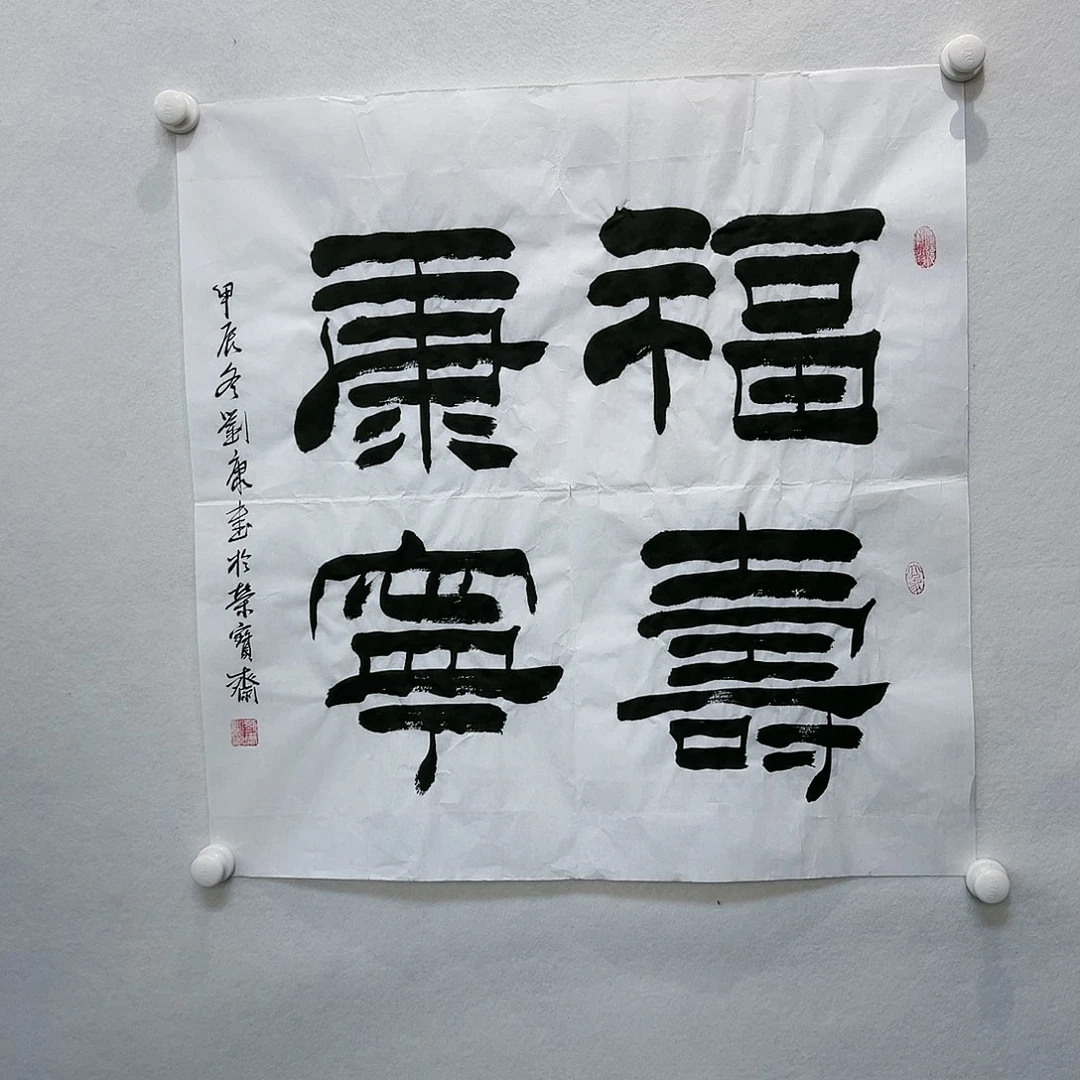 福壽
康寧
甲辰冬劉康書於榮寶齋